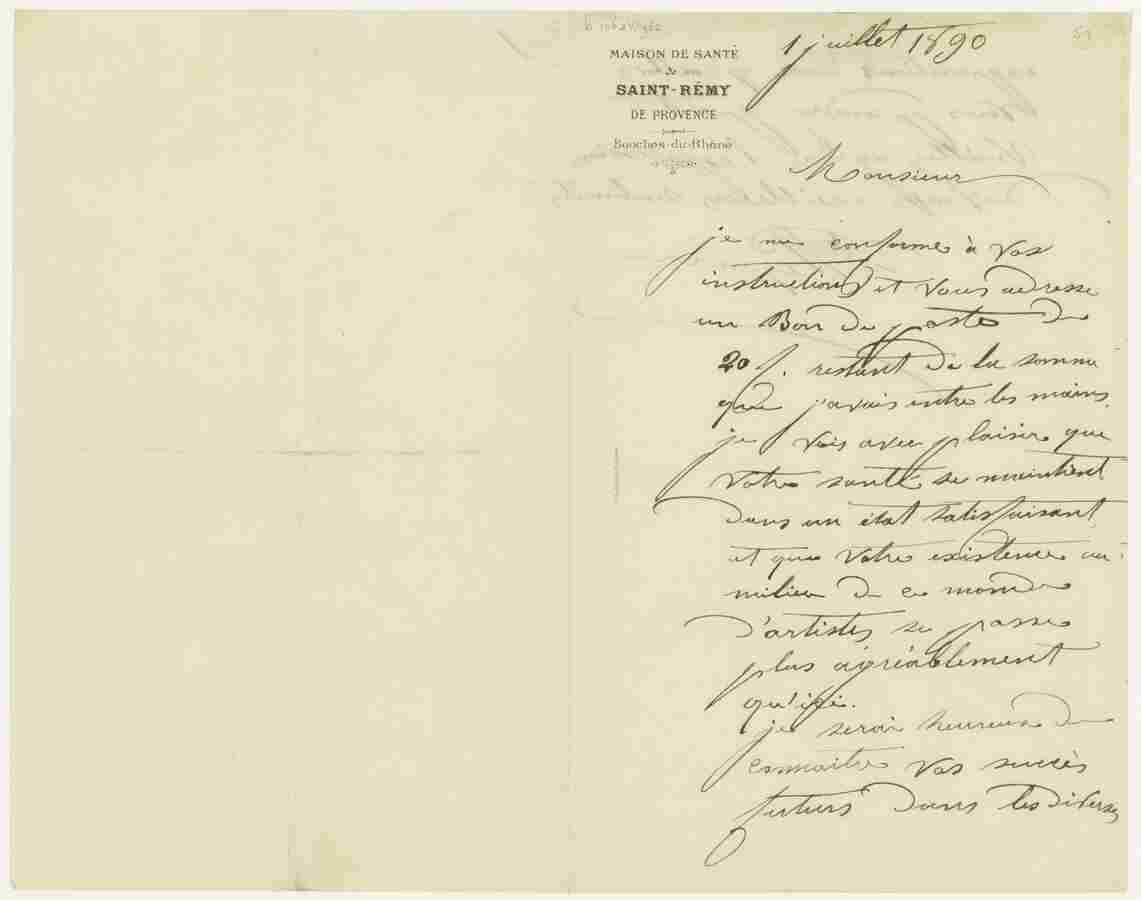 MAISON DE SANTÉ
de
SAINT-RÉMY
DE PROVENCE
Bouches-du-Rhône
1 juillet 1890
Monsieur
je me conforme à vos
instructions et vous adresse
un Bon de poste de
20 f. restant de la somme
que j'avais entre les mains.
je vois avec plaisir que
votre santé se maintient
dans un état satisfaisant
et que votre existence au
milieu de ce monde
d'artistes se passe
plus agréablement
qu'ici.
je serai heureux de
connaitre vos succès
futurs dans les diverses